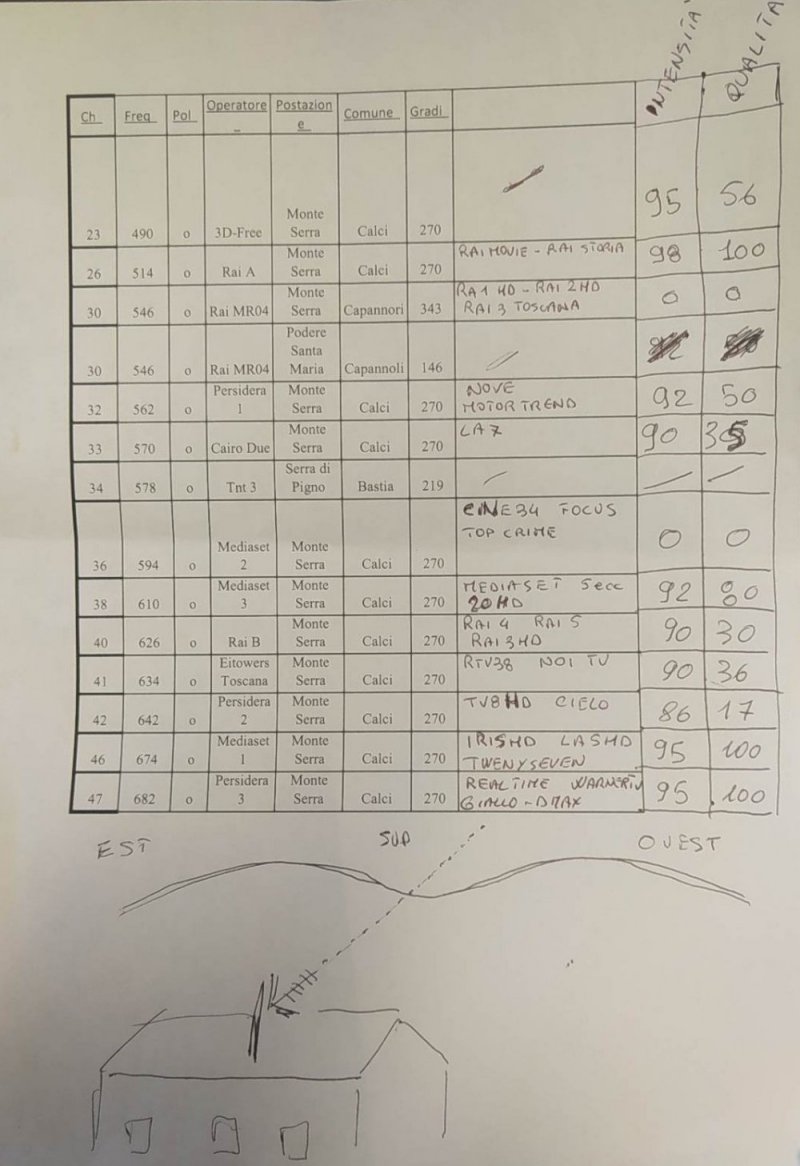 INTENSITA' QUALITA
Ch Freq Pol Operatore Postazione Comune Gradi
23 490 o 3D-Free Monte Serra Calci 270 95 56
26 514 o Rai A Monte Serra Calci 270 RAI MOVIE - RAI STORIA 98 100
30 546 o Rai MR04 Monte Serra Capannori 343 RA1 HD - RAI 2HD RAI 3 TOSCANA 0 0
30 546 o Rai MR04 Podere Santa Maria Capannoli 146
32 562 o Persidera 1 Monte Serra Calci 270 NOVE MOTOR TREND 92 50
33 570 o Cairo Due Monte Serra Calci 270 LA 7 90
34 578 o Tnt 3 Serra di Pigno Bastia 219
36 594 o Mediaset 2 Monte Serra Calci 270 CINE34 FOCUS TOP CRIME 0 0
38 610 o Mediaset 3 Monte Serra Calci 270 MEDIASET 20HD 92
40 626 o Rai B Monte Serra Calci 270 RAI 4 RAI 5 RAI 3HD 90 30
41 634 o Eitowers Toscana Monte Serra Calci 270 RTV38 NOI TV 90 36
42 642 o Persidera 2 Monte Serra Calci 270 TV8HD CIELO 86 17
46 674 o Mediaset 1 Monte Serra Calci 270 IRISHD LA5HD TWENYSEVEN 95 100
47 682 o Persidera 3 Monte Serra Calci 270 REAL TIME WARNERTV GIALLO - DMAX 95 100
EST SUD OVEST